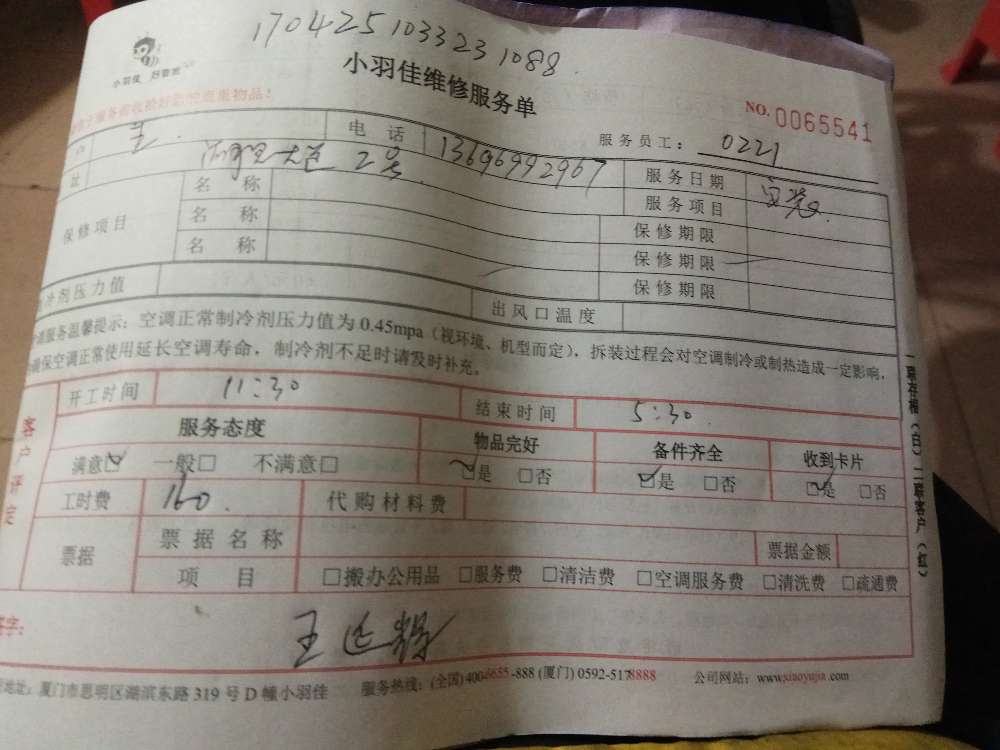 1704251033231088
小羽佳 妇智圣
小羽佳维修服务单
NO. 0065541
服务员工： 0221
王 电 话 13696992967 服务日期
址 2号 服务项目
保修项目 名 称 保修期限
名 称 保修期限
名 称 保修期限
冷剂压力值 出风口温度
服务温馨提示：空调正常制冷剂压力值为0.45mpa（视环境、机型而定），拆装过程会对空调制冷或制热造成一定影响，
确保空调正常使用延长空调寿命，制冷剂不足时请及时补充。
客户评定
开工时间 11:30 结束时间 5:30
服务态度 物品完好 备件齐全 收到卡片
满意☑ 一般□ 不满意□ ☑是 □否 ☑是 □否 ☑是 □否
工时费 160. 代购材料费
票据 票据名称 票据金额
项 目 □搬办公用品 □服务费 □清洁费 □空调服务费 □清洗费 □疏通费
字：
地址：厦门市思明区湖滨东路 319 号 D 幢小羽佳 服务热线：(全国) 400-6655-888 (厦门) 0592-5178888 公司网站：www.xiaoyujia.com
一联存根（白）二联客户（红）